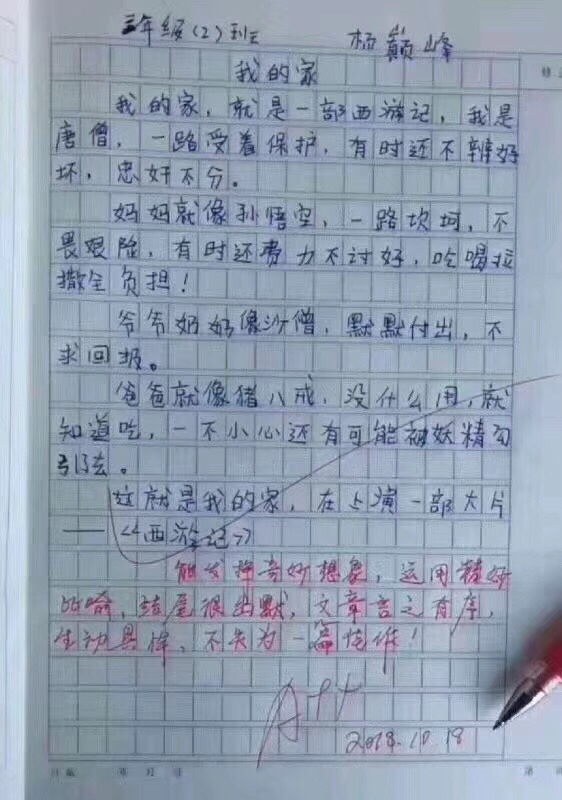 三年级（2）班 杨巅峰
我的家
我的家，就是一部西游记，我是
唐僧，一路受着保护，有时还不辨好
坏，忠奸不分。
妈妈就像孙悟空，一路坎坷，不
畏艰险，有时还费力不讨好，吃喝拉
撒全负担！
爷爷奶奶像沙僧，默默付出，不
求回报。
爸爸就像猪八戒，没什么用，就
知道吃，一不小心还有可能被妖精勾
引了去。
这就是我的家，在上演一部大片
——《西游记》
能发挥奇妙想象，运用精妙
比喻，结尾很幽默，文章言之有序，
生动具体，不失为一篇佳作！
A++
2018.10.18